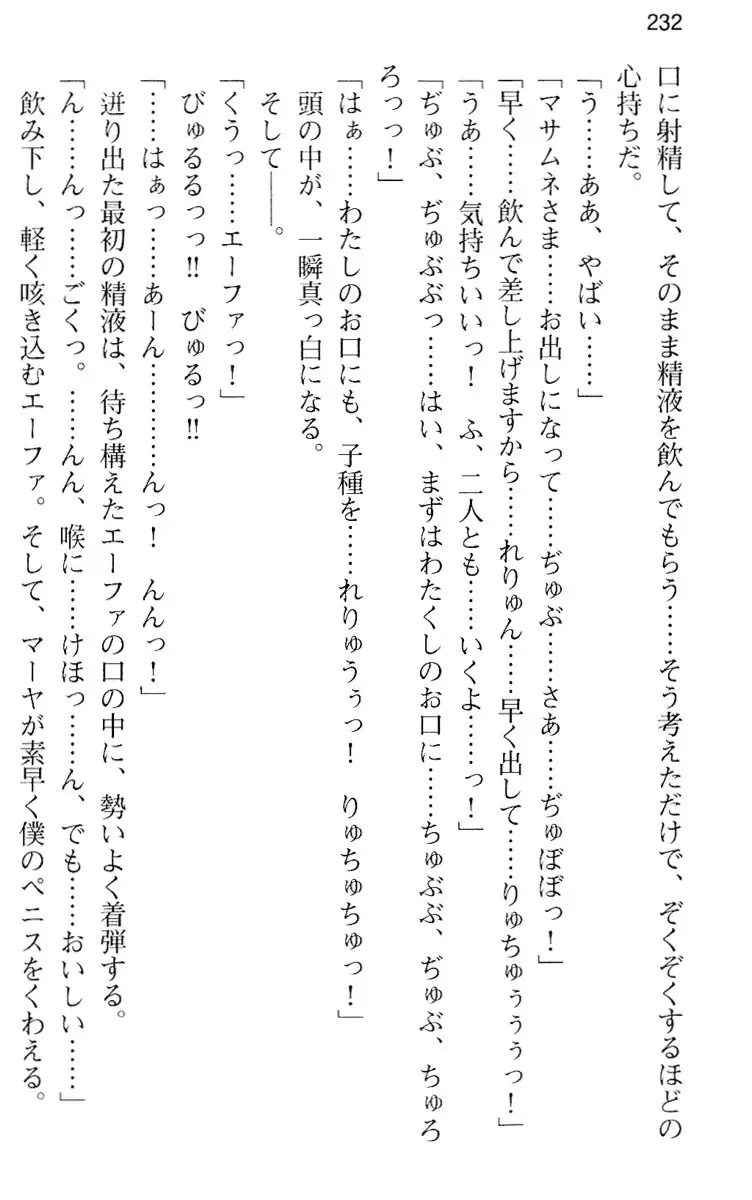 232
口に射精して、そのまま精液を飲んでもらう……そう考えただけで、ぞくぞくするほどの
心持ちだ。
「う……ああ、やばい……」
「マサムネさま……お出しになって……ぢゅぶ……さあ……ぢゅぼぼっ！」
「早く……飲んで差し上げますから……れりゅん……早く出して……りゅちゅぅぅぅっ！」
「うあ……気持ちいいっ！　ふ、二人とも……いくよ……っ！」
「ぢゅぶ、ぢゅぶぶっ……はい、まずはわたくしのお口に……ちゅぶぶ、ぢゅぶ、ちゅろ
ろっっ！」
「はぁ……わたしのお口にも、子種を……れりゅうぅっ！　りゅちゅちゅっ！」
頭の中が、一瞬真っ白になる。
そして――。
「くうっ……エーファっ！」
びゅるるっっ!!　びゅるっ!!
「……はぁっ……あーん…………んっ！　んんっ！」
迸り出た最初の精液は、待ち構えたエーファの口の中に、勢いよく着弾する。
「ん……んっ……ごくっ。……んん、喉に……けほっ……ん、でも……おいしい……」
飲み下し、軽く咳き込むエーファ。そして、マーヤが素早く僕のペニスをくわえる。